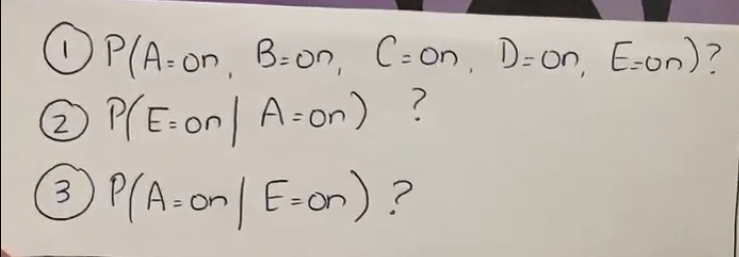 ① P(A=on, B=on, C=on, D=on, E=on)?
② P(E=on | A=on) ?
③ P(A=on | E=on) ?